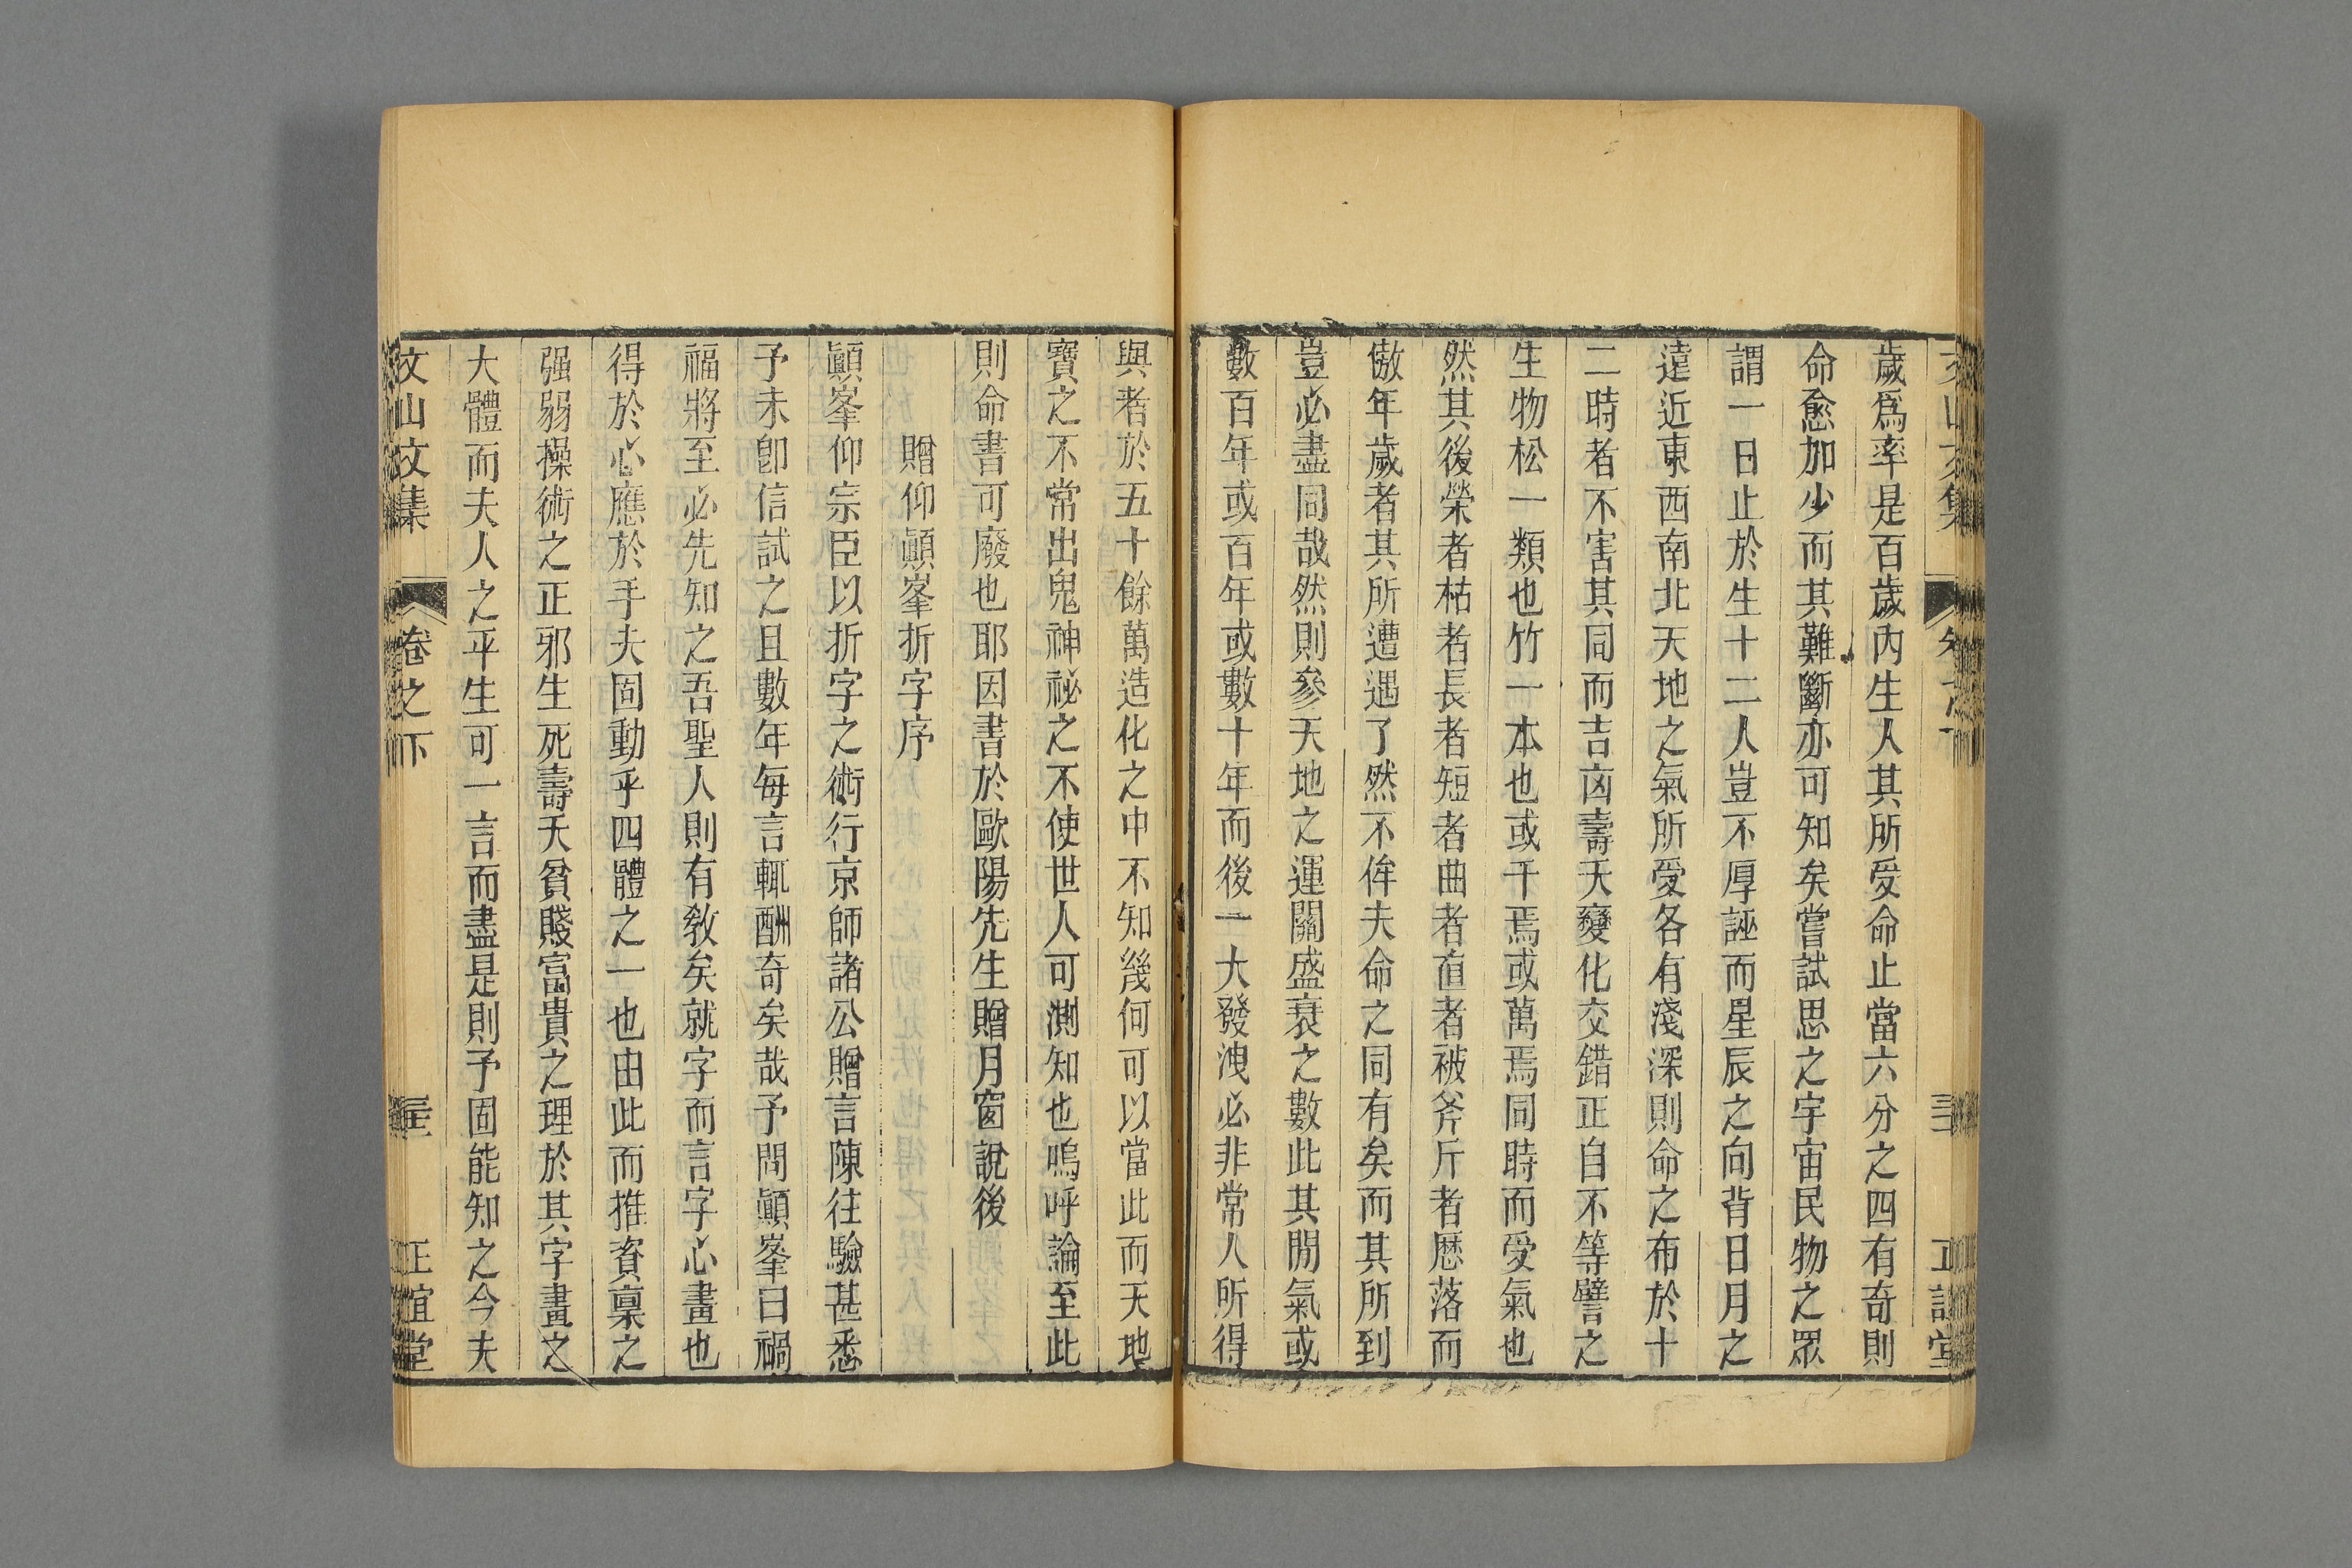 歲爲率是百歲內生人其所受命止當六分之四有奇則
命愈加少而其難斷亦可知矣嘗試思之宇宙民物之眾
謂一日止於生十二人豈不厚誣而星辰之向背日月之
遠近東西南北天地之氣所受各有淺深則命之布於十
二時者不害其同而吉凶壽夭變化交錯正自不等譬之
生物松一類也竹一本也或千焉或萬焉同時而受氣也
然其後榮者枯者長者短者曲者直者被斧斤者歷落而
傲年歲者其所遭遇了然不侔夫命之同有矣而其所到
豈必盡同哉然則參天地之運關盛衰之數此其間氣或
數百年或百年或數十年而後一大發洩必非常人所得
與者於五十餘萬造化之中不知幾何可以當此而天地
寶之不常出鬼神祕之不使世人可測知也嗚呼論至此
則命書可廢也耶因書於歐陽先生贈月窗說後
贈仰顚峯折字序
顚峯仰宗臣以折字之術行京師諸公贈言陳往驗甚悉
予未卽信試之且數年每言輒酬奇矣哉予問顚峯曰禍
福將至必先知之吾聖人則有敎矣就字而言字心畫也
得於心應於手夫固動乎四體之一也由此而推資稟之
强弱操術之正邪生死壽夭貧賤富貴之理於其字畫之
大體而夫人之平生可一言而盡是則予固能知之今夫
文山文集
卷之下
正誼堂